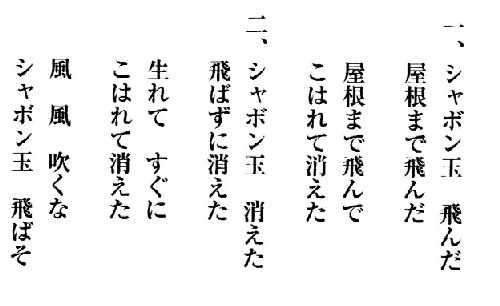 一、シャボン玉　飛んだ
屋根まで飛んだ
屋根まで飛んで
こはれて消えた
二、シャボン玉　消えた
飛ばずに消えた
生れて　すぐに
こはれて消えた
風　風　吹くな
シャボン玉　飛ばそ